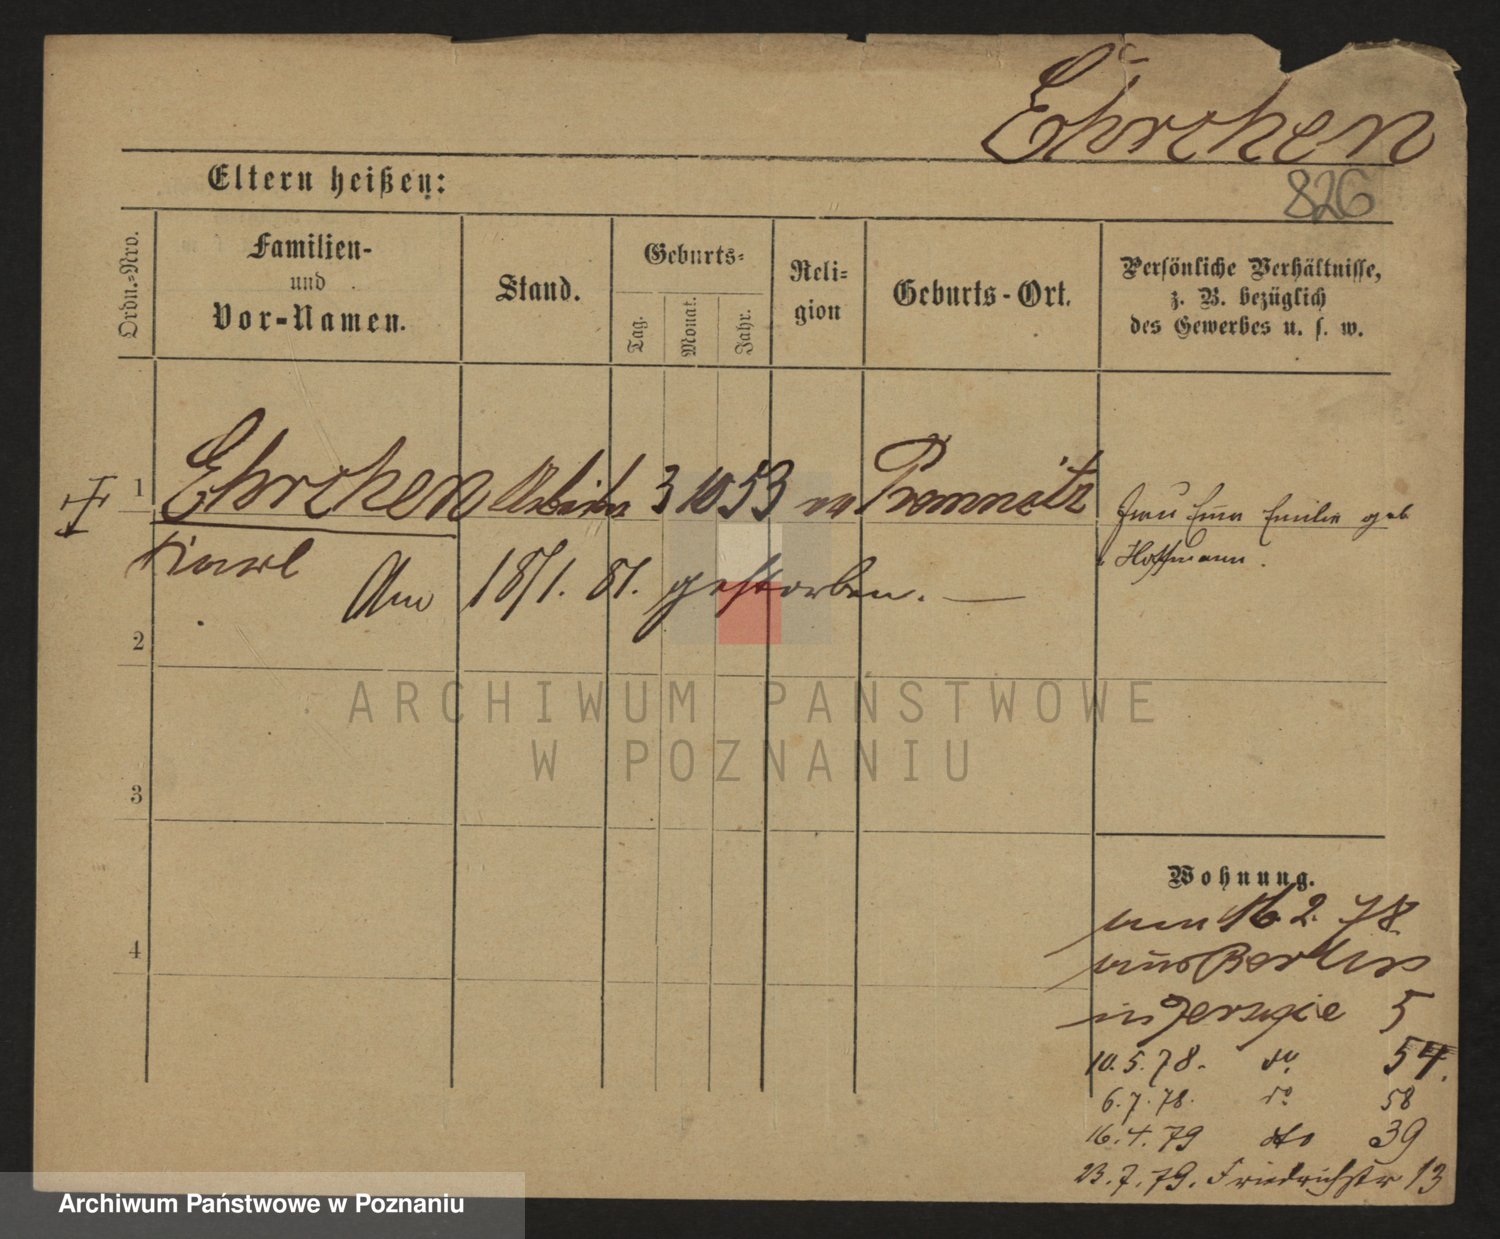 Ehrchen
826
Eltern heißen:
Ordn.-Nro.
Familien-
und
Vor-Namen.
Stand.
Geburts-
Tag.
Monat.
Jahr.
Reli-
gion
Geburts-Ort.
Persönliche Verhältnisse,
z. B. bezüglich
des Gewerbes u. s. w.
1 Ehrchen Arbeiter 3 10 53 ev
Karl
Frau Emilie geb
Hoffmann.
Am 18/1. 81. gestorben.
2
3
4
ARCHIWUM PAŃSTWOWE
W POZNANIU
Wohnung.
am 16. 2. 78
aus Berlin
in Jerzyce 5
10. 5. 78. do 54.
6. 7. 78. do 58
16. 4. 79 dto 39
23. 7. 79. Friedrichstr 13
Archiwum Państwowe w Poznaniu